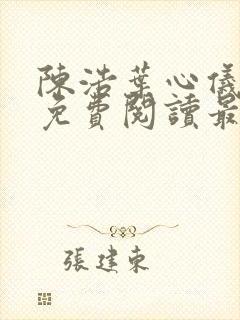 陳浩葉心儀
免費閱讀最
張建東